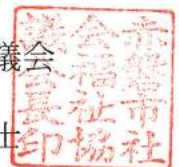 議会
士
赤磐市社
会福祉協
議会長印